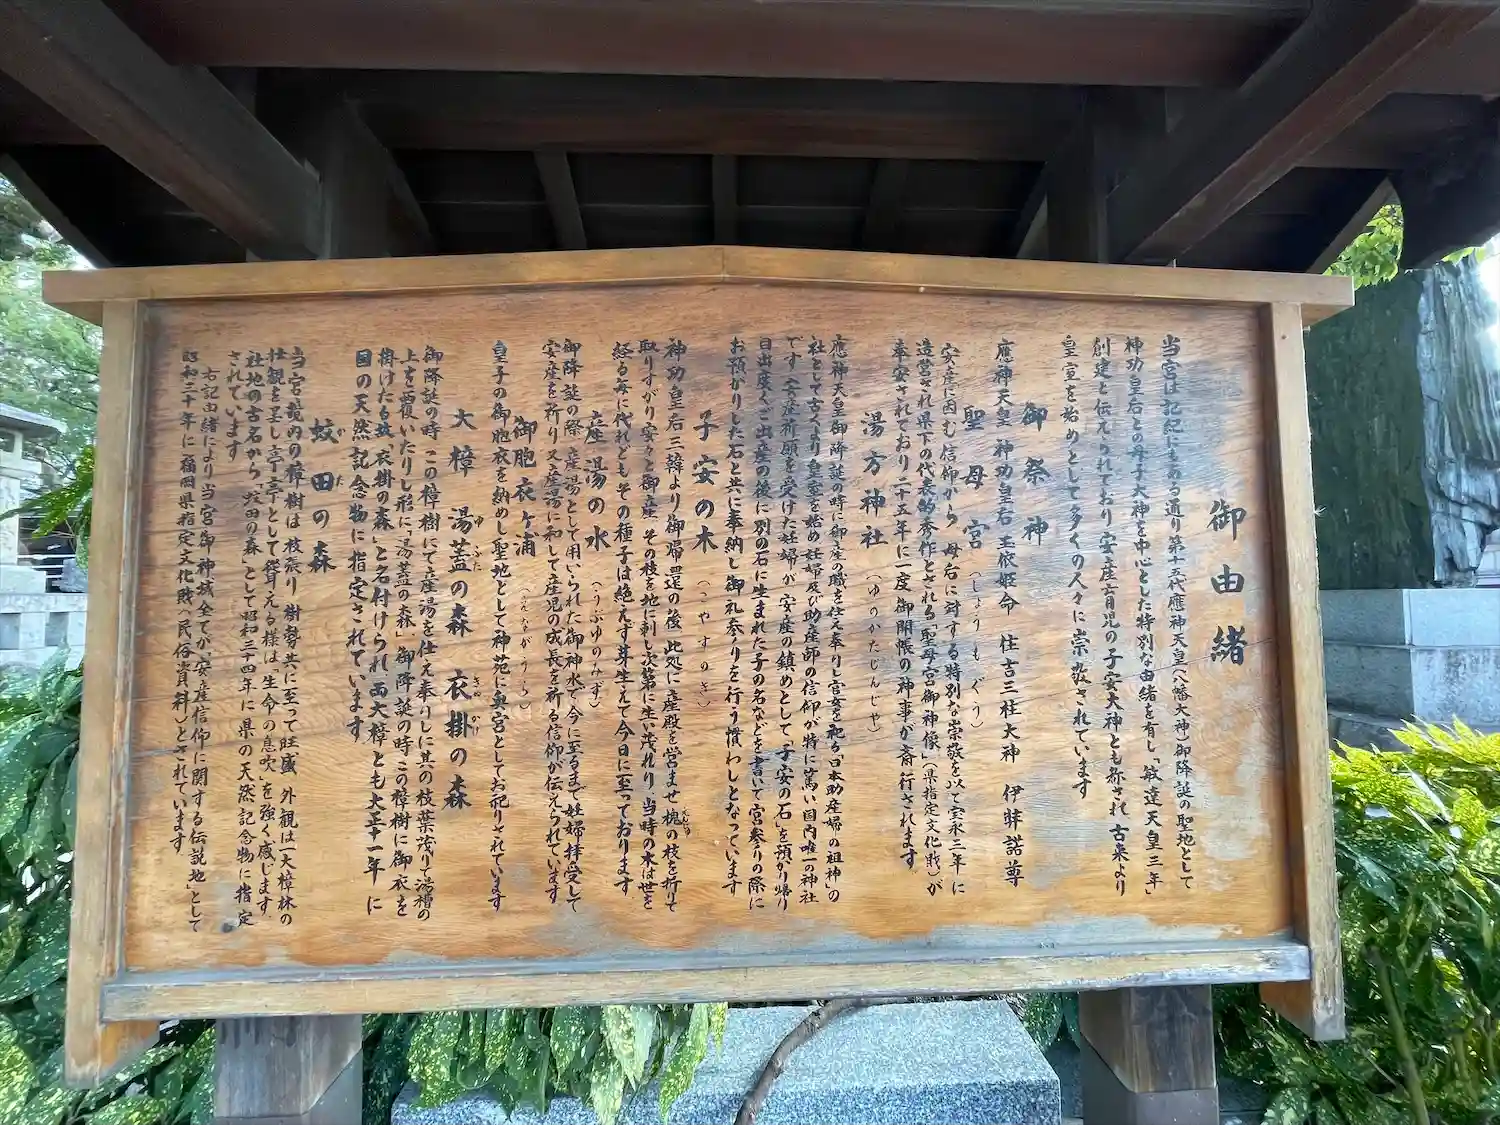 御由緒
当宮は記紀にもある通り第十五代應神天皇(八幡大神)御降誕の聖地として
神功皇后との母子大神を中心とした特別な由緒を有し「敏達天皇三年」
創建と伝えられており安産育児の子安大神とも称され古来より
皇室を始めとして多くの人々に崇敬されています
御祭神
應神天皇 神功皇后 玉依姫命 住吉三柱大神 伊弉諾尊
聖母宮(しょうもぐう)
安産に因む信仰から母后に対する特別な崇敬を以て宝永三年に
造営され県下の代表的秀作とされる「聖母宮御神像」(県指定文化財)が
奉安されており二十五年に一度御開帳の神事が斎行されます
湯方神社(ゆのかたじんじゃ)
應神天皇御降誕の時に御産の職を仕え奉りし官女を祀る「日本助産婦の祖神」の
社として古より皇室を始め妊婦及び助産師の信仰が特に篤い国内唯一の神社
です(安産祈願を受けた妊婦が安産の鎮めとして「子安の石」を預かり帰り
目出度くご出産の後に別の石に生まれた子の名などを書いて宮参りの際に
お預かりした石と共に奉納し御礼参りを行う慣わしとなっています
子安の木(こやすのき)
神功皇后三韓より御帰還の後此処に産殿を営ませ槐の枝を折りて
取りすがり安々と御産 その枝を地に刺し次第に生い茂れり当時の木は世を
経る毎に代れどもその種子は絶えず芽生えて今日に至っております
産湯の水(うぶゆのみず)
御降誕の際産湯として用いられた御神水で今に至るまで妊婦拝受して
安産を祈り又産湯に和して産児の成長を祈る信仰が伝えられています
御胞衣ヶ浦(えながうら)
皇子の御胞衣を納めし聖地として神苑に奥宮としてお祀りされています
大樟 湯蓋の森 衣掛の森
ゆふた きぬかけ
御降誕の時この樟樹にて産湯を仕え奉りしに其の枝葉茂りて湯槽の
上を覆いたりし形に「湯蓋の森」御降誕の時この樟樹に御衣を
掛けたる故「衣掛の森」と名付けられ両大樟とも大正十一年に
国の天然記念物に指定されています
蚊田の森
かだ
当宮境内の樟樹は枝張り樹勢共に至って旺盛 外観は一大樟林の
壮観を呈し亭亭として聳える様は「生命の息吹」を強く感じます
社地の古名から「蚊田の森」として昭和三十四年に県の天然記念物に指定
されています
右記由緒により当宮御神域全てが「安産信仰に関する伝説地」として
昭和三十年に福岡県指定文化財(民俗資料)とされています